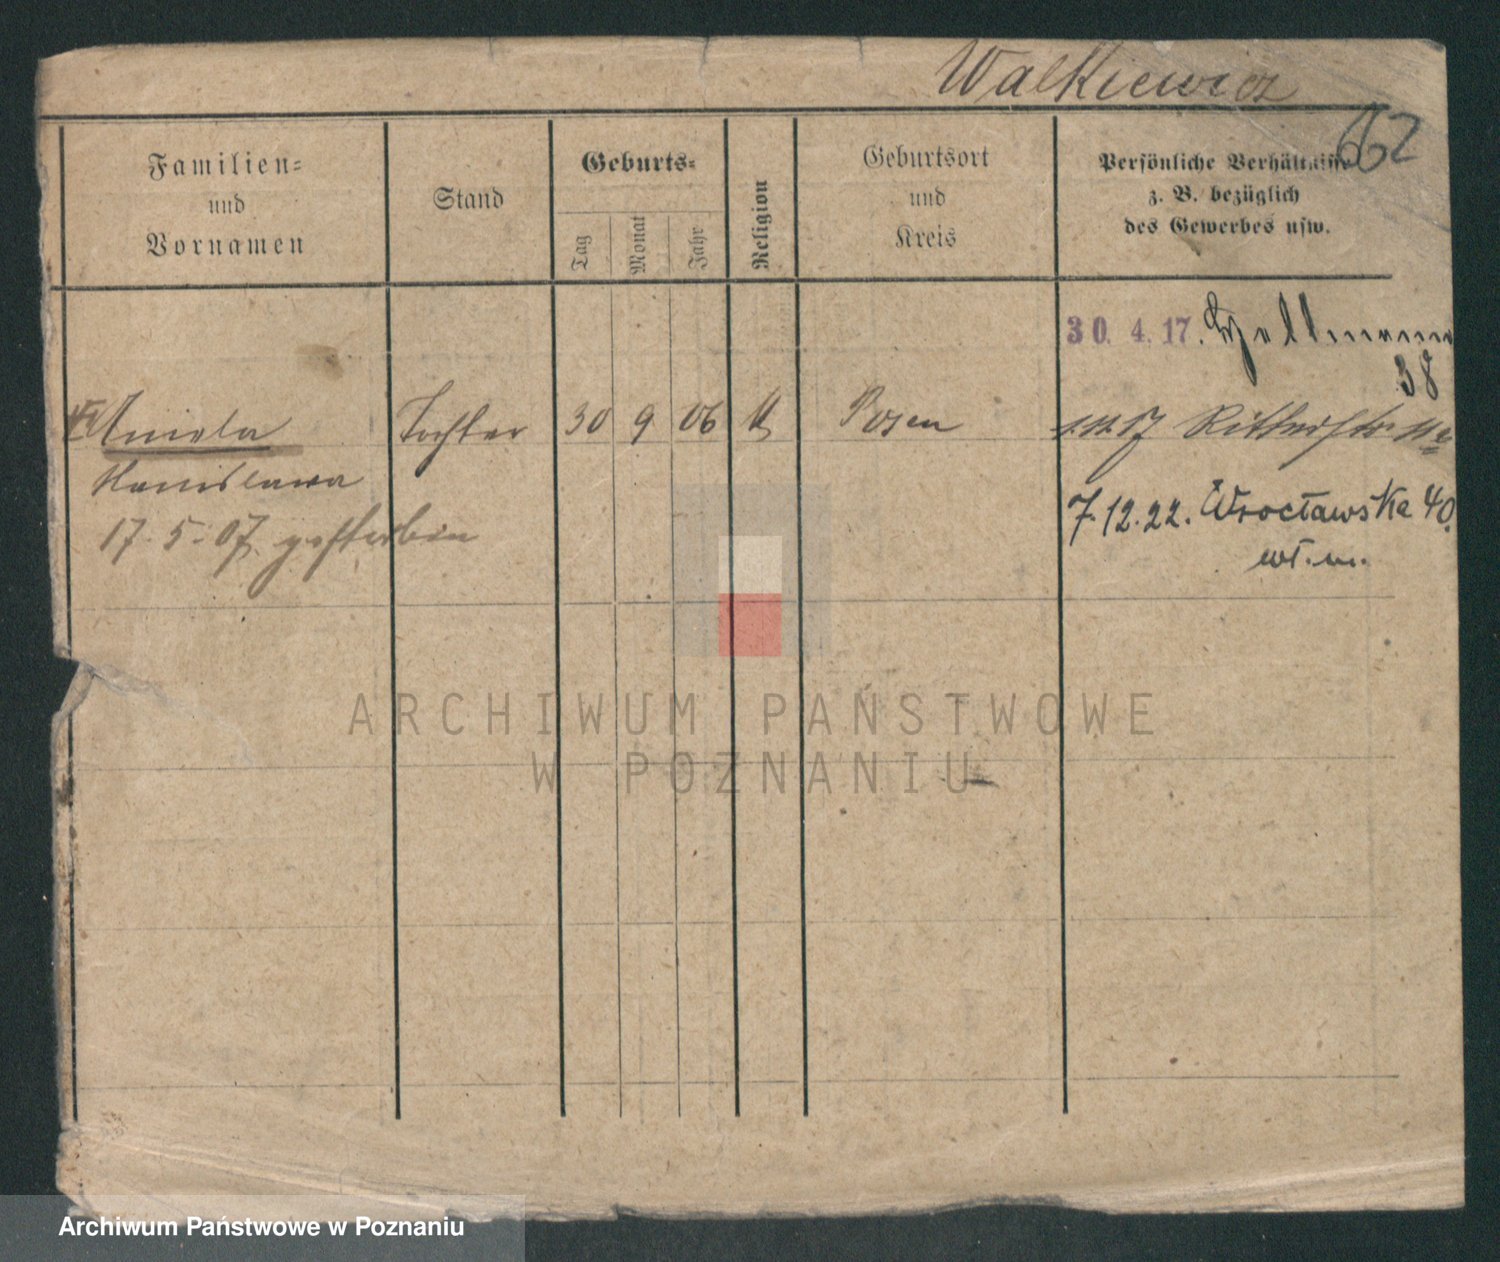 Walkiewicz
662
Familien-
und
Vornamen
Stand
Geburts-
Tag
Monat
Jahr
Religion
Geburtsort
und
Kreis
Persönliche Verhältnisse
z. B. bezüglich
des Gewerbes usw.
30. 4. 17.
38
Aniela
Tochter
30
9
06
K
Posen
Ritterstr.
Stanislawa
17. 5. 07. gestorben
7.12.22. Wrocławska 40.
wł. m.
ARCHIWUM PAŃSTWOWE
W POZNANIU
Archiwum Państwowe w Poznaniu